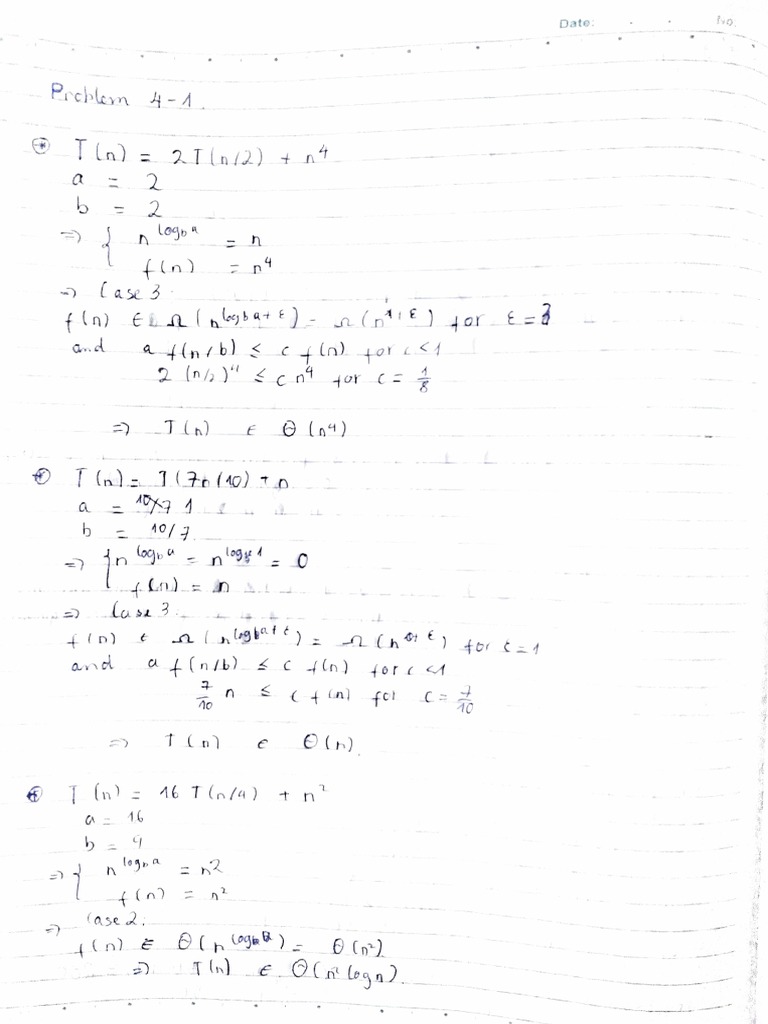 Date: . . No.
Problem 4-1.
T(n) = 2T(n/2) + n⁴
a = 2
b = 2
=> { n^(log_b a) = n
f(n) = n⁴
=> Case 3
f(n) ∈ Ω(n^(log_b a + ε)) = Ω(n^(1+ε)) for ε = 3
and a f(n/b) ≤ c f(n) for c<1
2 (n/2)⁴ ≤ c n⁴ for c = 1/8
=> T(n) ∈ Θ(n⁴)
T(n) = T(7n/10) + n
a = 1
b = 10/7
=> { n^(log_b a) = n^(log_b 1) = 0
f(n) = n
=> Case 3.
f(n) ∈ Ω(n^(log_b a + ε)) = Ω(n^(0+ε)) for ε = 1
and a f(n/b) ≤ c f(n) for c<1
7/10 n ≤ c f(n) for c = 7/10
=> T(n) ∈ Θ(n).
T(n) = 16 T(n/4) + n²
a = 16
b = 4
=> { n^(log_b a) = n²
f(n) = n²
=> Case 2.
f(n) ∈ Θ(n^(log_b a)) = Θ(n²)
=> T(n) ∈ Θ(n² log n).